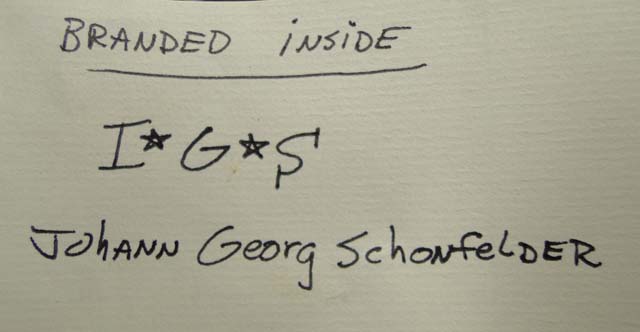 BRANDED iNSiDE
I★G★S
JohANN Georg SchoNfeLDER